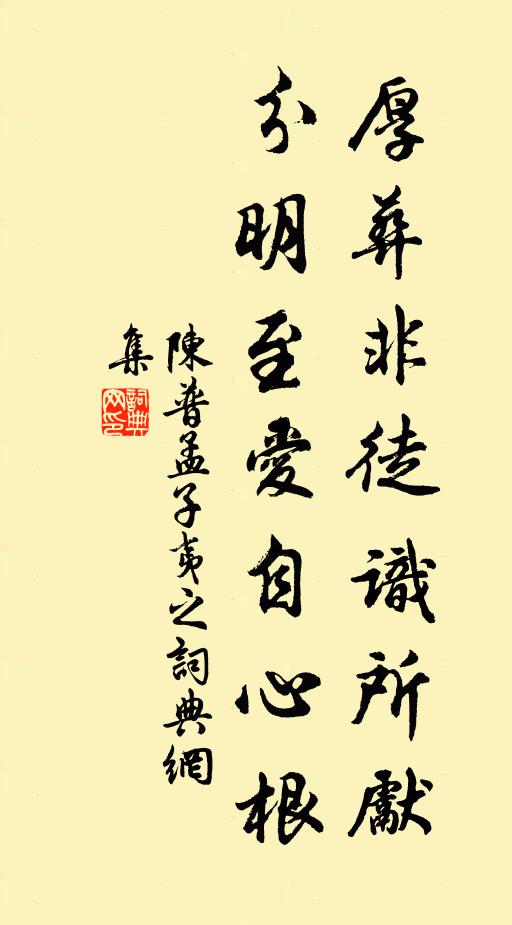 厚葬非徒識所獻
分明至愛自心根
陳普孟子夷之詞典網
集
詞典
网印